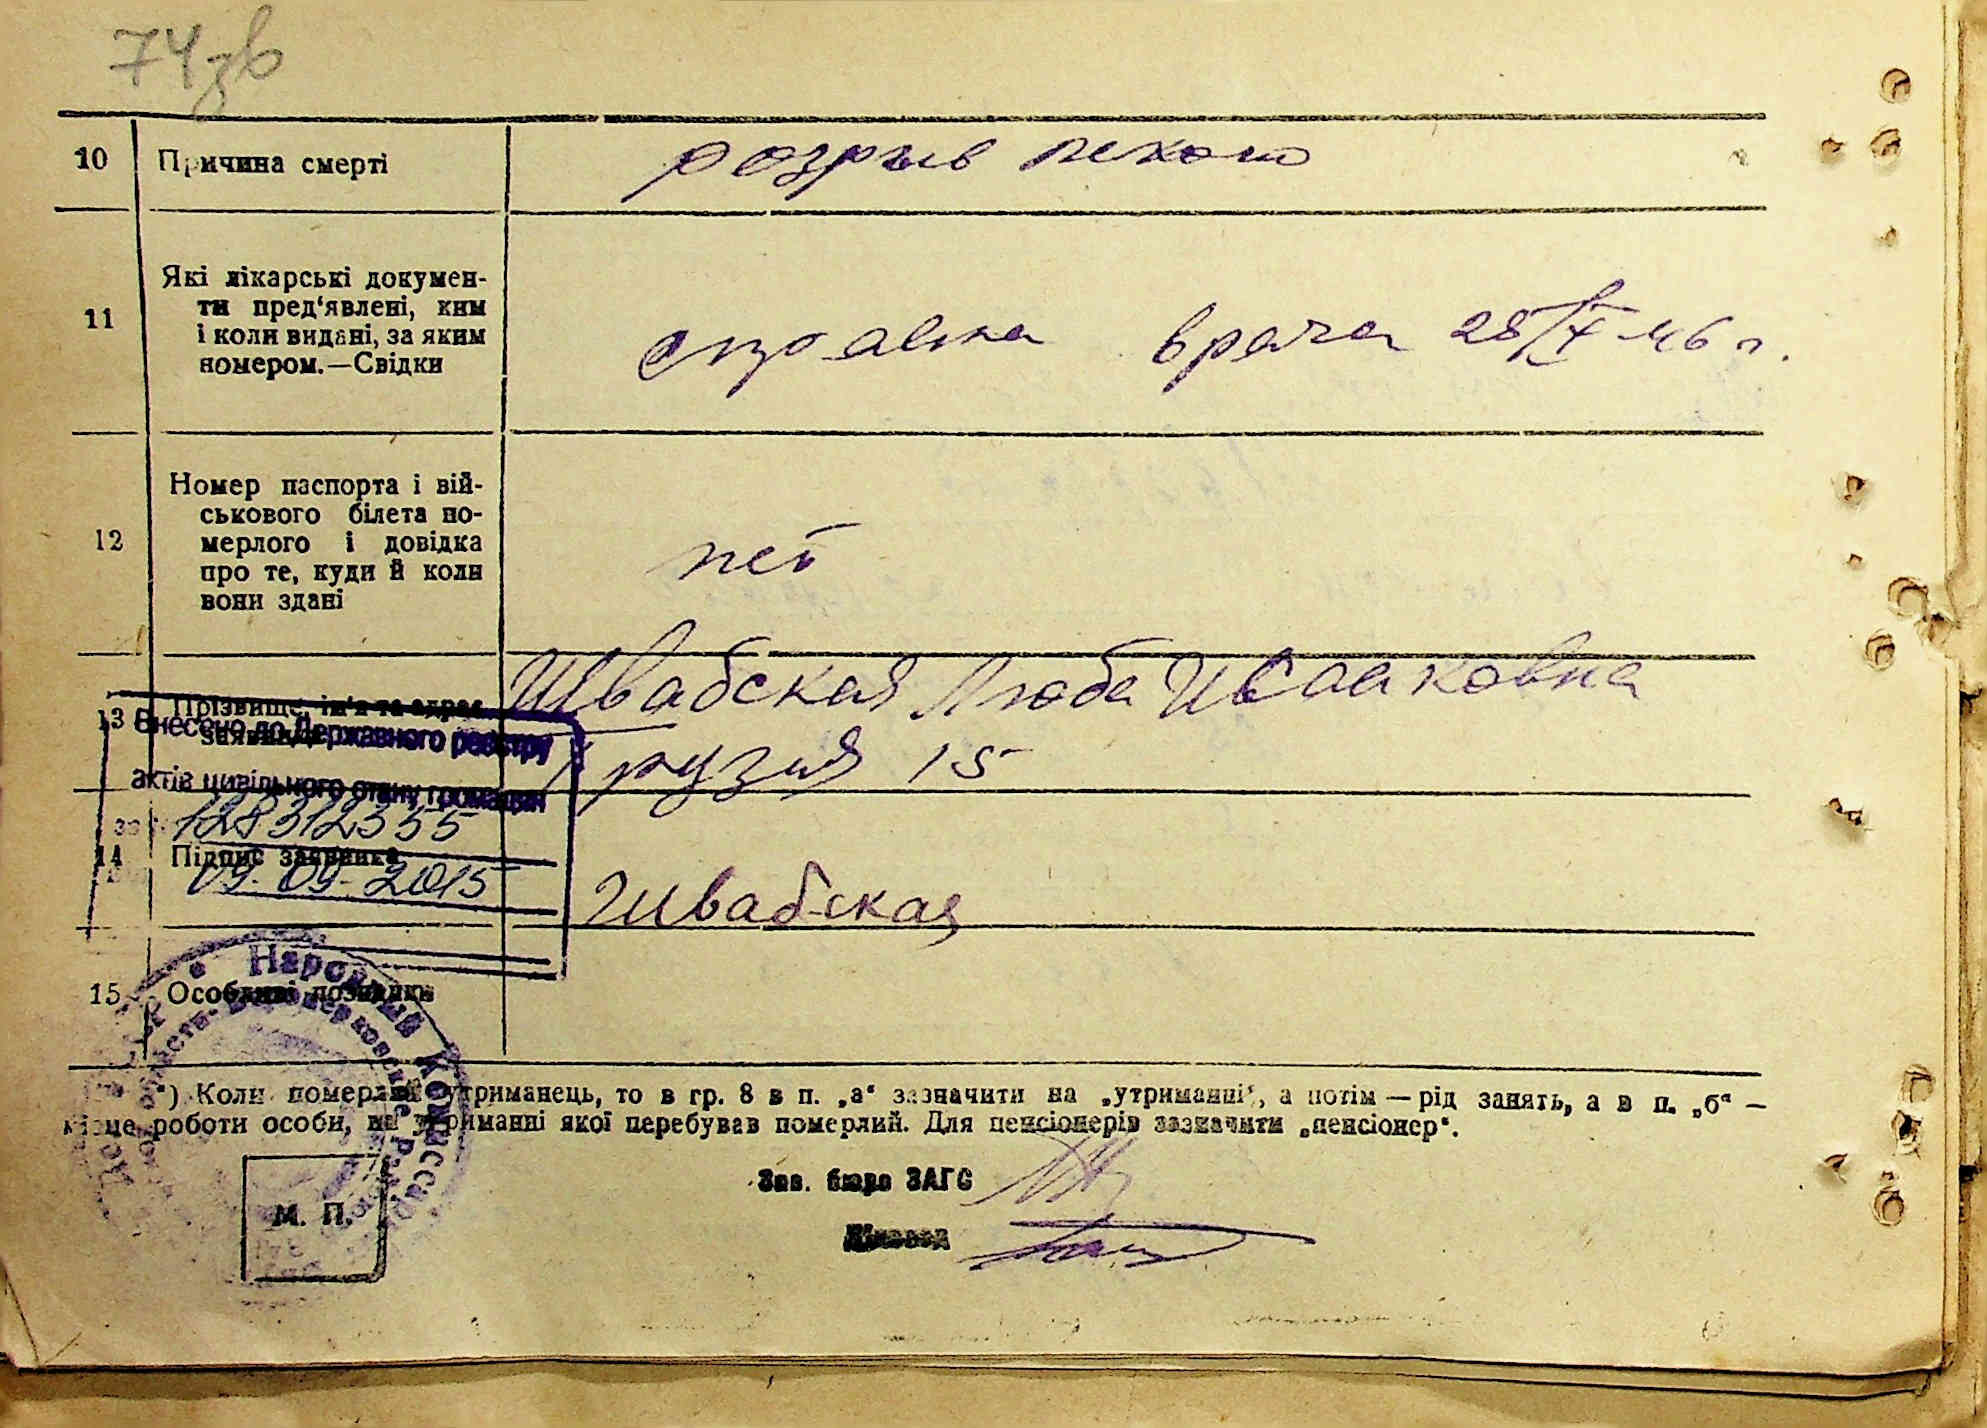 74зв
10 Причина смерті
розрыв
11 Які лікарські докумен-
ти пред'явлені, ким
і коли видані, за яким
номером.—Свідки
справка врача 28/IX 46 г.
12 Номер паспорта і вій-
ськового білета по-
мерлого і довідка
про те, куди й коли
вони здані
нет
13 Прізвище, ім'я та адрес
заявника
Швабская Люба Исааковна
Грузия 15
Внесено до Державного реєстру
актів цивільного стану громадян
за № 128312355
14 Підпис заявника
09.09.2015
Швабская
15 Особливі познаки
Народный Комиссариат
*) Коли померлий утриманець, то в гр. 8 в п. „а“ зазначити на „утриманні“, а потім — рід занять, а в п. „б“ —
місце роботи особи, на утриманні якої перебував померлий. Для пенсіонерів зазначити „пенсіонер“.
Зав. бюро ЗАГС
Діловод
М. П.